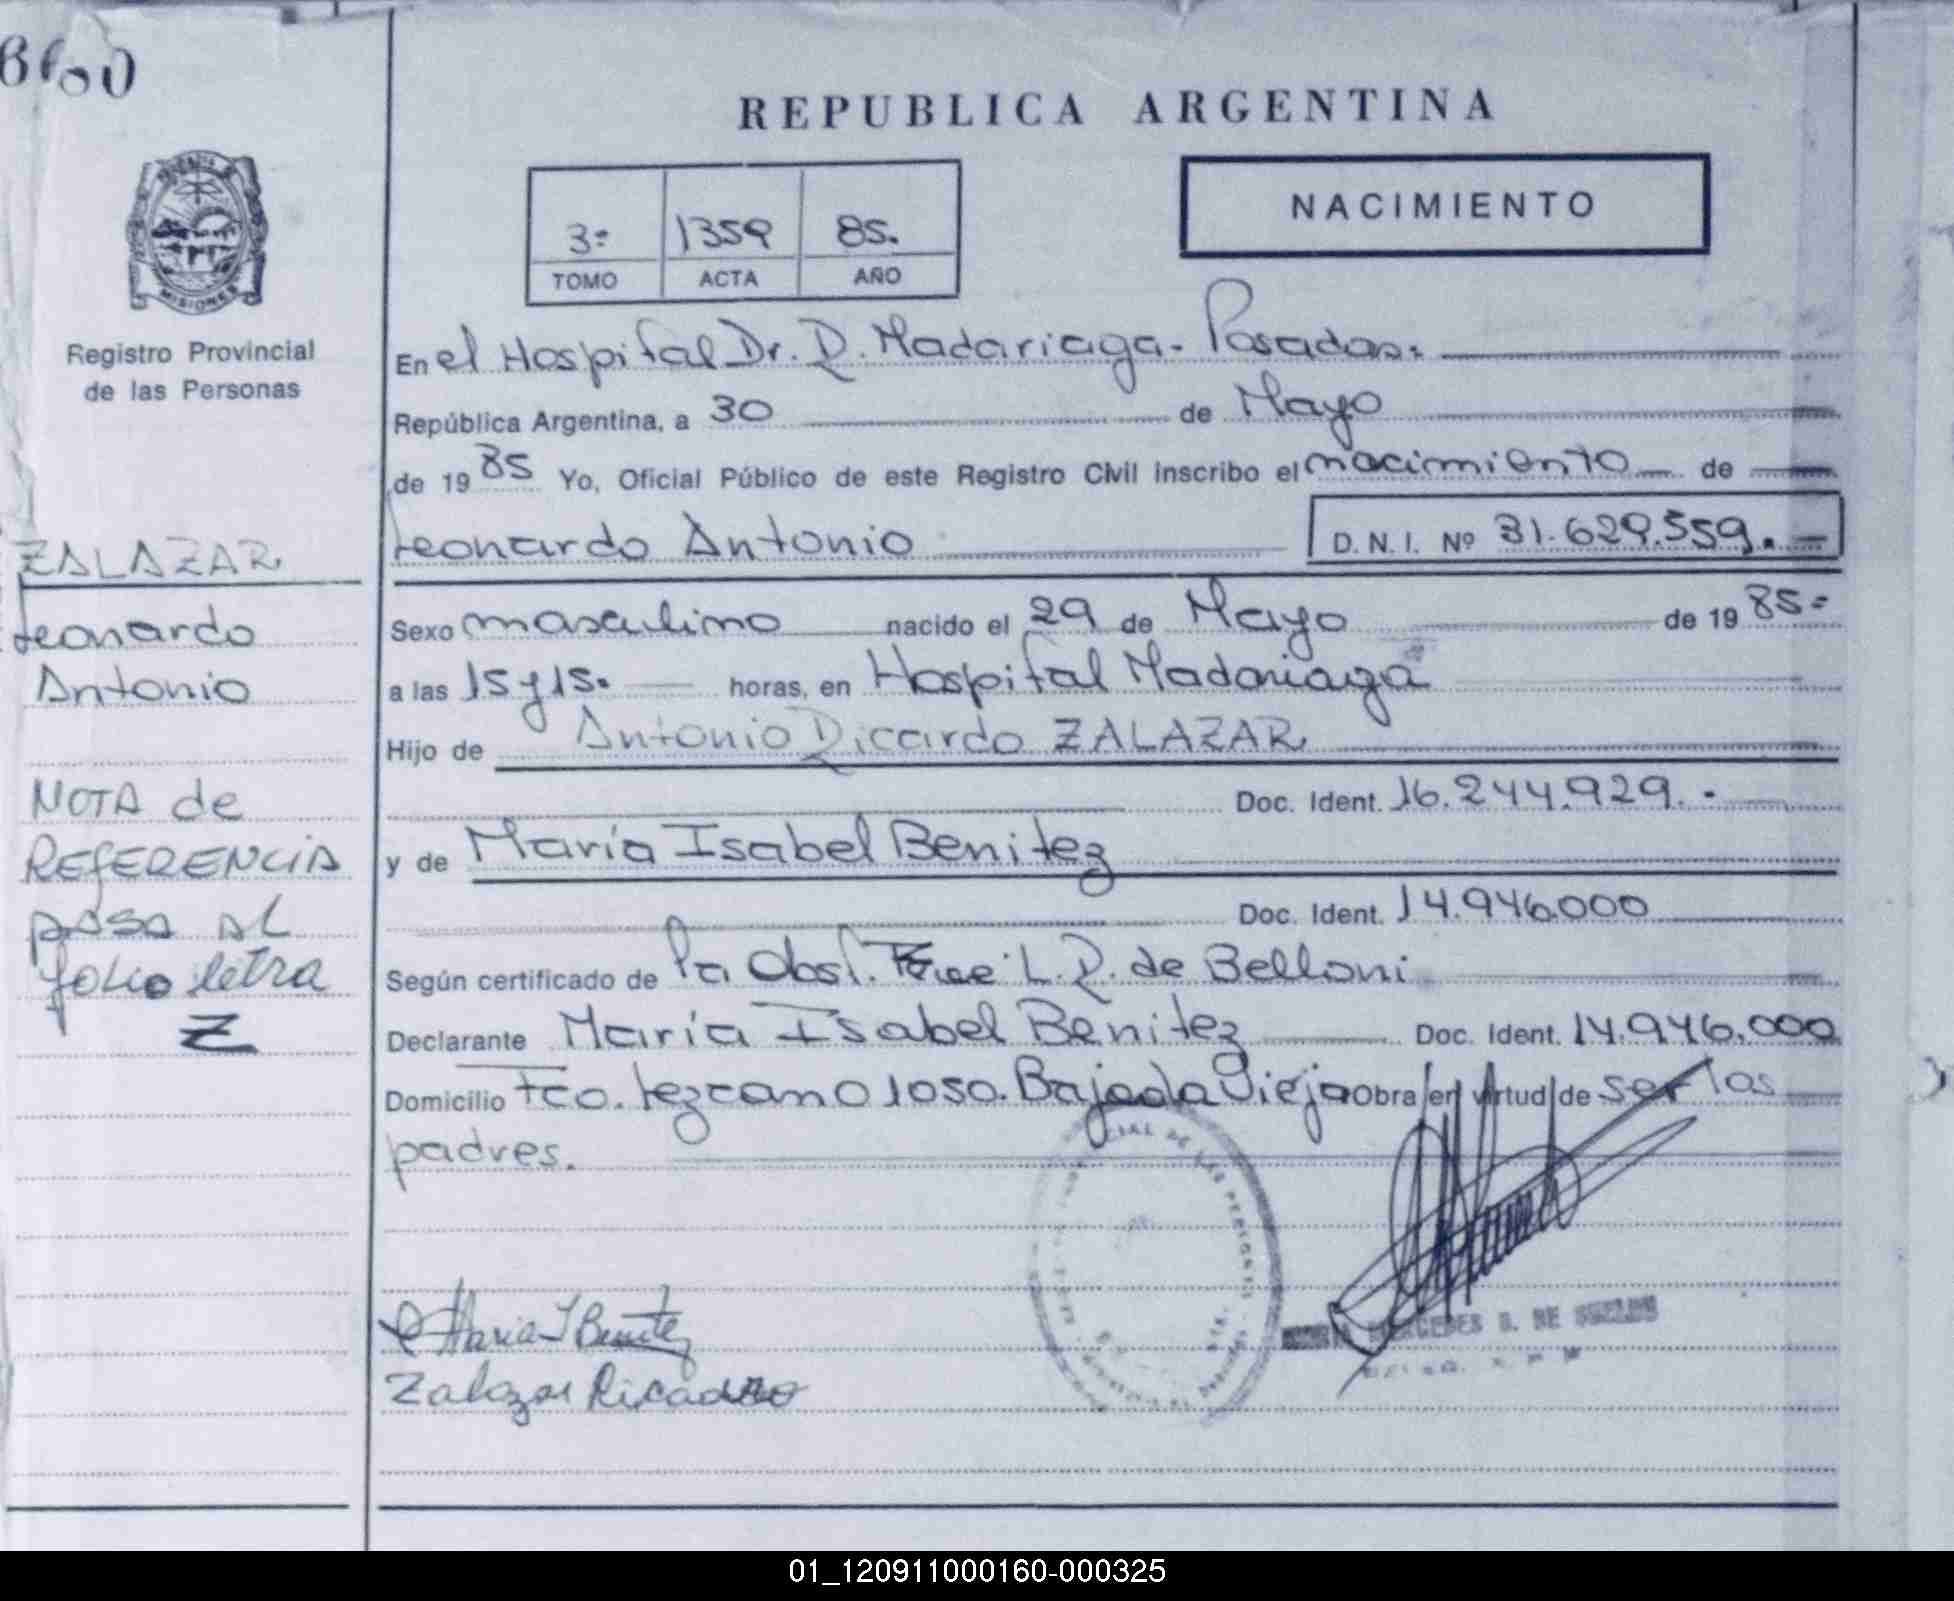 REPUBLICA ARGENTINA
MISIONES
Registro Provincial
de las Personas
3º 1359 85.
TOMO ACTA AÑO
NACIMIENTO
En el Hospital Dr. R. Madariaga - Posadas.
República Argentina, a 30 de Mayo
de 1985 Yo, Oficial Público de este Registro Civil inscribo el nacimiento de
Leonardo Antonio D.N.I. Nº 31.629.559.
ZALAZAR
Leonardo
Antonio
NOTA de
REFERENCIA
pasa al
folio letra
Z
Sexo masculino nacido el 29 de Mayo de 1985=
a las 15 y 15. horas, en Hospital Madariaga
Hijo de Antonio Ricardo ZALAZAR
Doc. Ident. 16.244.929.
y de María Isabel Benitez
Doc. Ident. 14.946.000
Según certificado de la Obst. L. R. de Belloni
Declarante María Isabel Benitez Doc. Ident. 14.946.000
Domicilio Fco. Lezcano 1050. Bajada Vieja Obra en virtud de ser los
padres.
Maria I Benitez
Zalazar Ricardo
01_120911000160-000325